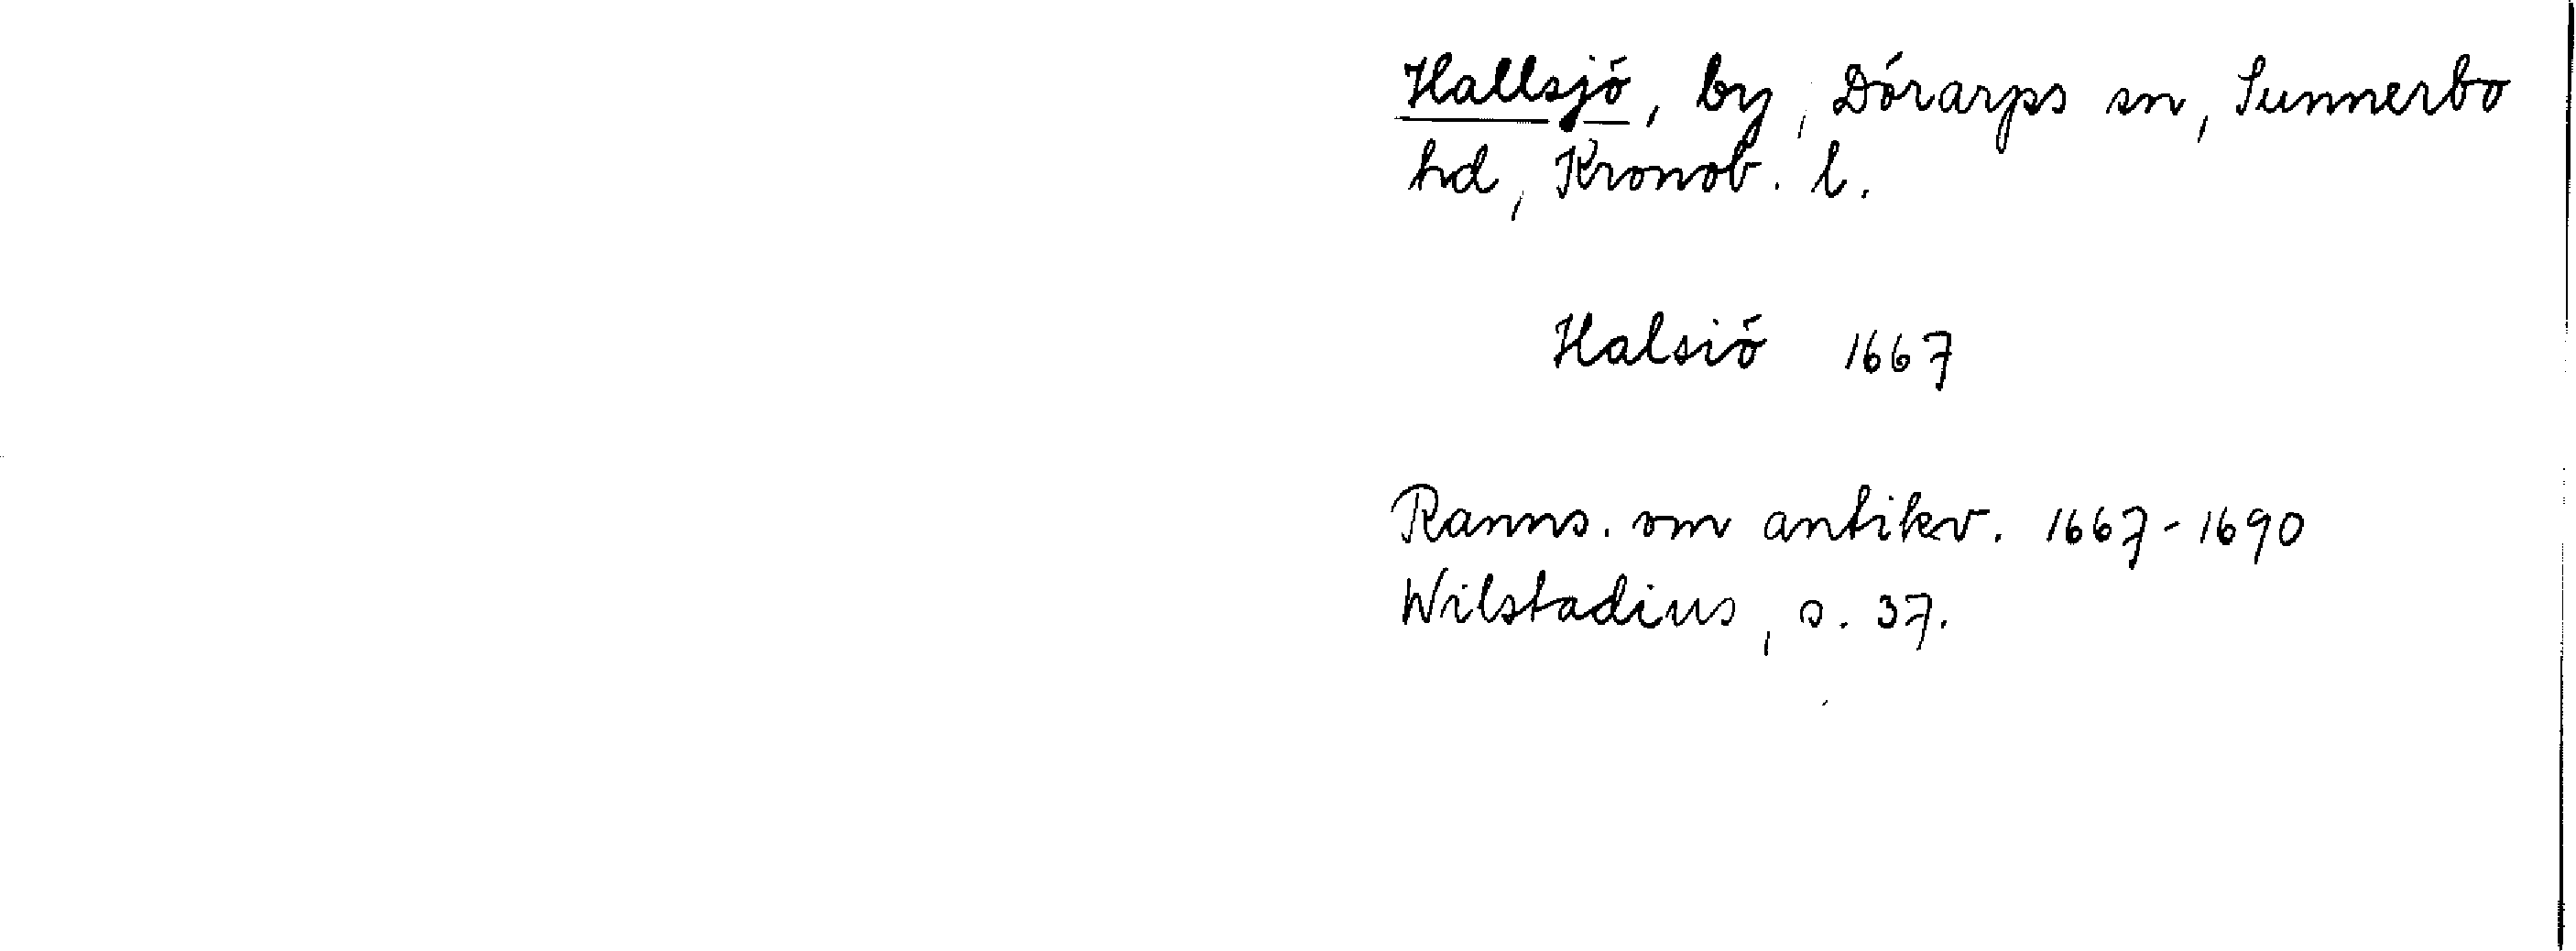 Hallsjö, by, Dörarps sn, Sunnerbo
hd, Kronob. l.
Halsiö 1667
Ranns. om antikv. 1667-1690
Wilstadius, s. 37.